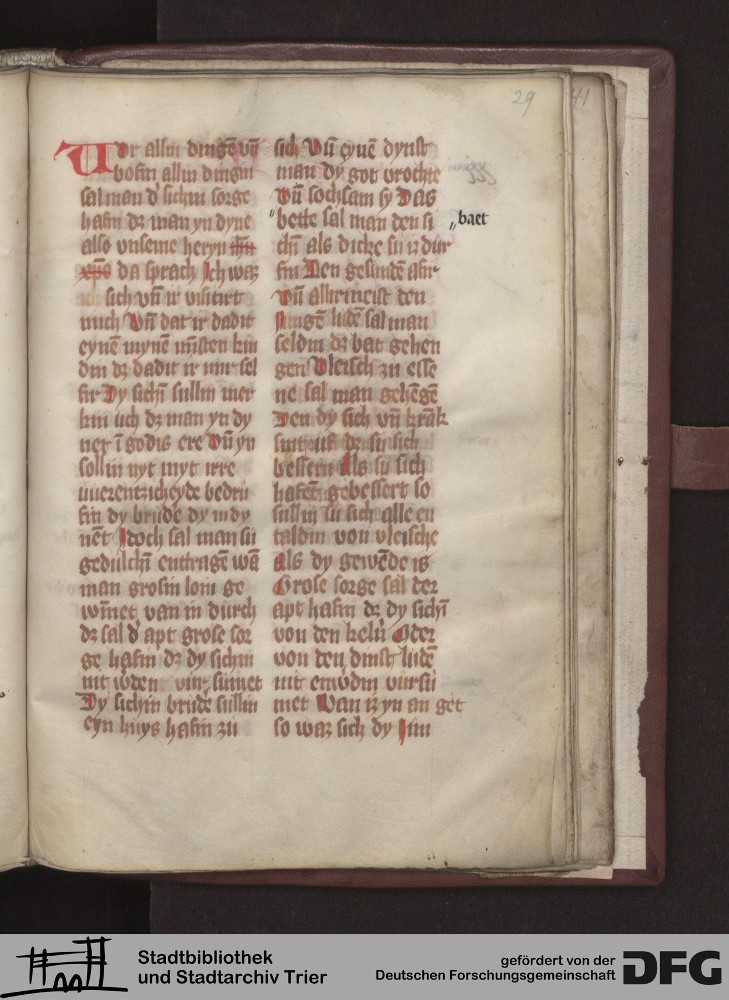 29
41
Vor allin dingē vn̄
bofin allin dingin
sal man d' sichin sorge
hafin dz man yn dyne
also vnseme heryn ihū
xp̄o da sprach Ich waz
sich vn̄ ir visitirt
mich Vn̄ dat ir dadit
eynē mynē mīsten kin
din dz dadit ir mir sel
fir Dy sichī sullin mer
kin uch dz man yn dy
net ī godis ere Vn̄ yn
sollin nyt myt irre
bedru
fin dy brude dy in dy
nēt Idoch sal man su
gedulchī entragē wā
man grosin loin ge
wīnet van in durch
dz sal d' apt grose sor
ge hafin dz dy sichin
nit wden vir sumet
Dy sichin brude sullin
eyn huys hafin zu
sich Vn̄ eynē dynst
man dy got vrochte
Vn̄ sochsam sy Das
"bette sal man den si
"baet
chī als dicke su iz dur
fin Den gesundē afir
Vn̄ allirmeist den
Jungē ludē sal man
seldin dz bat gehen
gen Vleisch zu esse
ne sal man gehēgē
Den dy sich vn̄ krāk
sint uf dz su sich
bessern Als su sich
hafēt gebessert so
sullin su sich alle en
taldin von vleische
Als dy gewēde is
Grose sorge sal der
apt hafin dz dy sichī
von den keln' Oder
von den dinst ludē
nit enwdin virsu
met Wan iz yn an get
so waz sich dy Jun
Stadtbibliothek
und Stadtarchiv Trier
gefördert von der
Deutschen Forschungsgemeinschaft
DFG